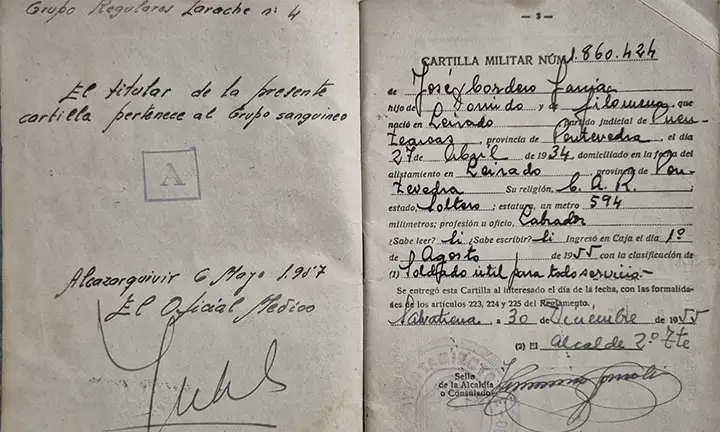 Grupo Regulares Larache nº 4
El titular de la presente
cartilla pertenece al Grupo sanguineo
A
Alcazarquivir 6 Mayo 1957
El Oficial Medico
— 3 —
CARTILLA MILITAR NÚM. 1.860.424
de José Cordero
hijo de y de Filomena, que
nació en Leirado Partido judicial de Puen-
teareas, provincia de Pontevedra, el día
27 de Abril de 1934, domiciliado en la fecha del
alistamiento en Leirado, provincia de Pon-
tevedra Su religión, C. A. R.;
estado, Soltero; estatura, un metro 594
milímetros; profesión u oficio, Labrador
¿Sabe leer? Si ¿Sabe escribir? Si Ingresó en Caja el día 1º
de Agosto de 1955 con la clasificación de
(1) Soldado útil para todo servicio.-
Se entregó esta Cartilla al interesado el día de la fecha, con las formalida-
des de los artículos 223, 224 y 225 del Reglamento.
Salvatierra a 30 de Diciembre de 1955
(2) El Alcalde 2º Tte
Sello
de la Alcaldía
o Consulado